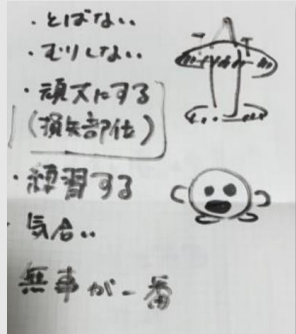 ・とばない
・むりしない
・頑丈にする
(損失部位)
・練習する
・気合い
無事が一番